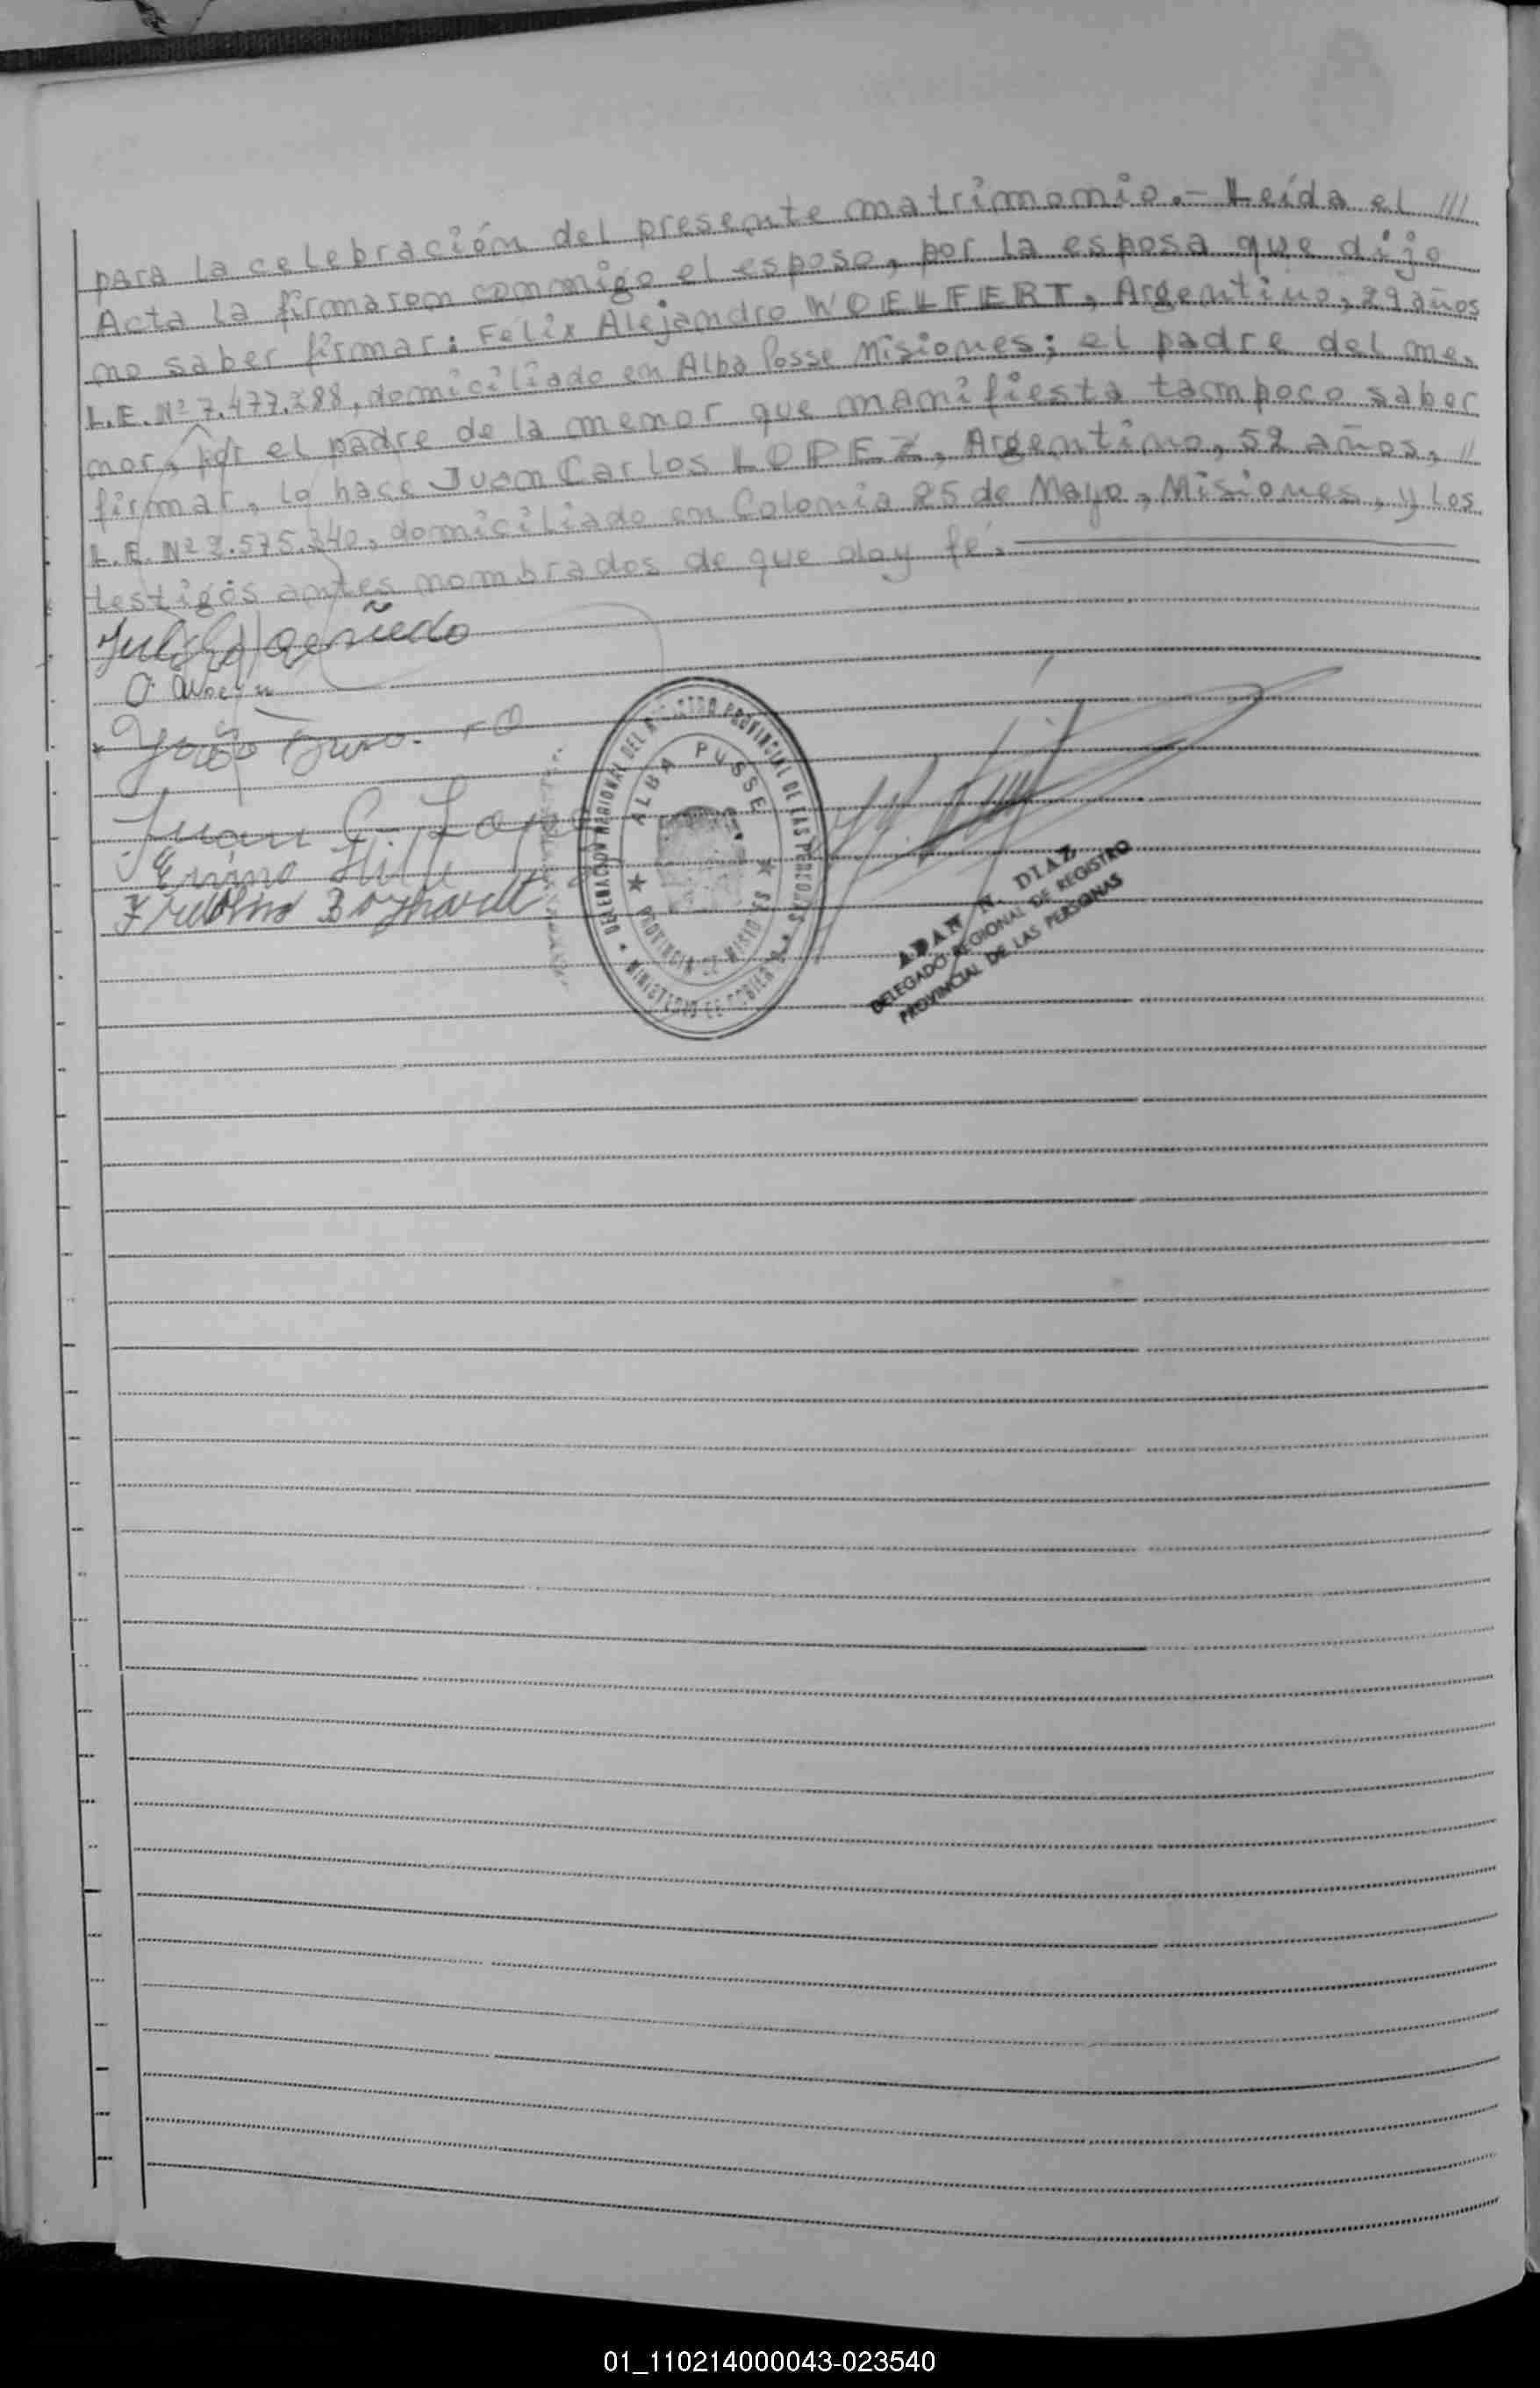 para la celebración del presente matrimonio.- Leída el ///
Acta la firmaron conmigo el esposo, por la esposa que dijo
no saber firmar: Félix Alejandro WOELFERT, Argentino, 29 años
L.E. Nº 7.477.288, domiciliado en Alba Posse Misiones; el padre del me-
nor, por el padre de la menor que manifiesta tampoco saber
firmar, lo hace Juan Carlos LOPEZ, Argentino, 52 años, //
L.E. Nº 2.575.240, domiciliado en Colonia 25 de Mayo, Misiones, y los
testigos antes nombrados de que doy fé.
Juan C. Lopez
Erino Hille
DELEGACION REGIONAL DEL REGISTRO PROVINCIAL DE LAS PERSONAS
ALBA POSSE
PROVINCIA DE MISIONES
MINISTERIO DE GOBIERNO
ADAN N. DIAZ
DELEGADO REGIONAL DE REGISTRO
PROVINCIAL DE LAS PERSONAS
01_110214000043-023540